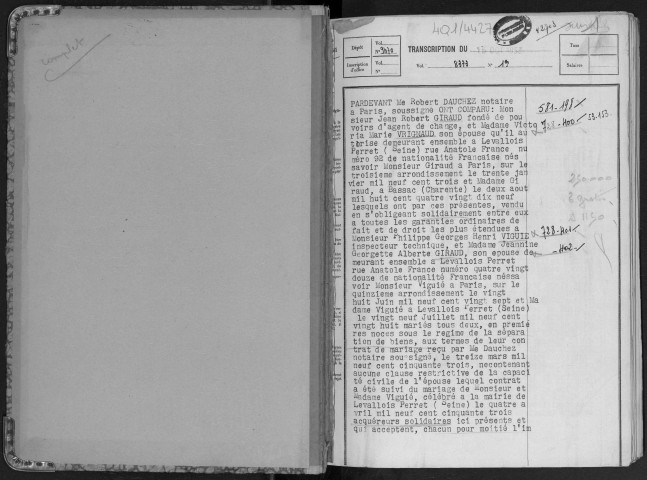 complete
4Q1/4427
Dépôt
Vol.
N°
TRANSCRIPTION DU
Taxe
Inscription d'office
Vol.
N°
Vol. 8777 n° 19
Salaires
PARDEVANT Me Robert DAUCHEZ notaire
a Paris, soussigné ONT COMPARU: Mon
sieur Jean Robert GIRAUD fondé de pou
voirs d'agent de change, et Madame Victo
ria Marie VRIGNAUD son épouse qu'il au
torise demeurant ensemble a Levallois
Perret ( Seine) rue Anatole France, nu
méro 92 de nationalité Française nés
savoir Monsieur Giraud a Paris, sur le
troisieme arrondissement le trente jan
vier mil neuf cent trois et Madame Gi
raud, a Bassac (Charente) le deux aout
mil huit cent quatre vingt dix neuf
lesquels ont par ces présentes, vendu
en s'obligeant solidairement entre eux
a toutes les garanties ordinaires de
fait et de droit les plus étendues a
Monsieur Philippe Georges Henri VIGUIE
inspecteur technique, et Madame Jeannine
Georgette Alberte GIRAUD, son epouse de
meurant ensemble a Levallois Perret
rue Anatole France numéro quatre vingt
douze de nationalité Francaise nés sa
voir Monsieur Viguié a Paris, sur le
quinzieme arrondissement le vingt
huit Juin mil neuf cent vingt sept et Ma
dame Viguié a Levallois Perret (Seine)
le vingt neuf Juillet mil neuf cent
vingt huit mariés tous deux, en premiè
res noces sous le regime de la sépara
tion de biens, aux termes de leur con
trat de mariage reçu par Me Dauchez
notaire soussigné, le treize mars mil
neuf cent cinquante trois, necontenant
aucune clause restrictive de la capaci
té civile de l'épouse lequel contrat
a été suivi du mariage de Monsieur et
Madame Viguié, célébré a la mairie de
Levallois Perret ( Seine) le quatre a
vril mil neuf cent cinquante trois
acquéreurs solidaires ici présents et
qui acceptent, chacun pour moitié l'im
581-198
728-400
53.153
728-401
-402